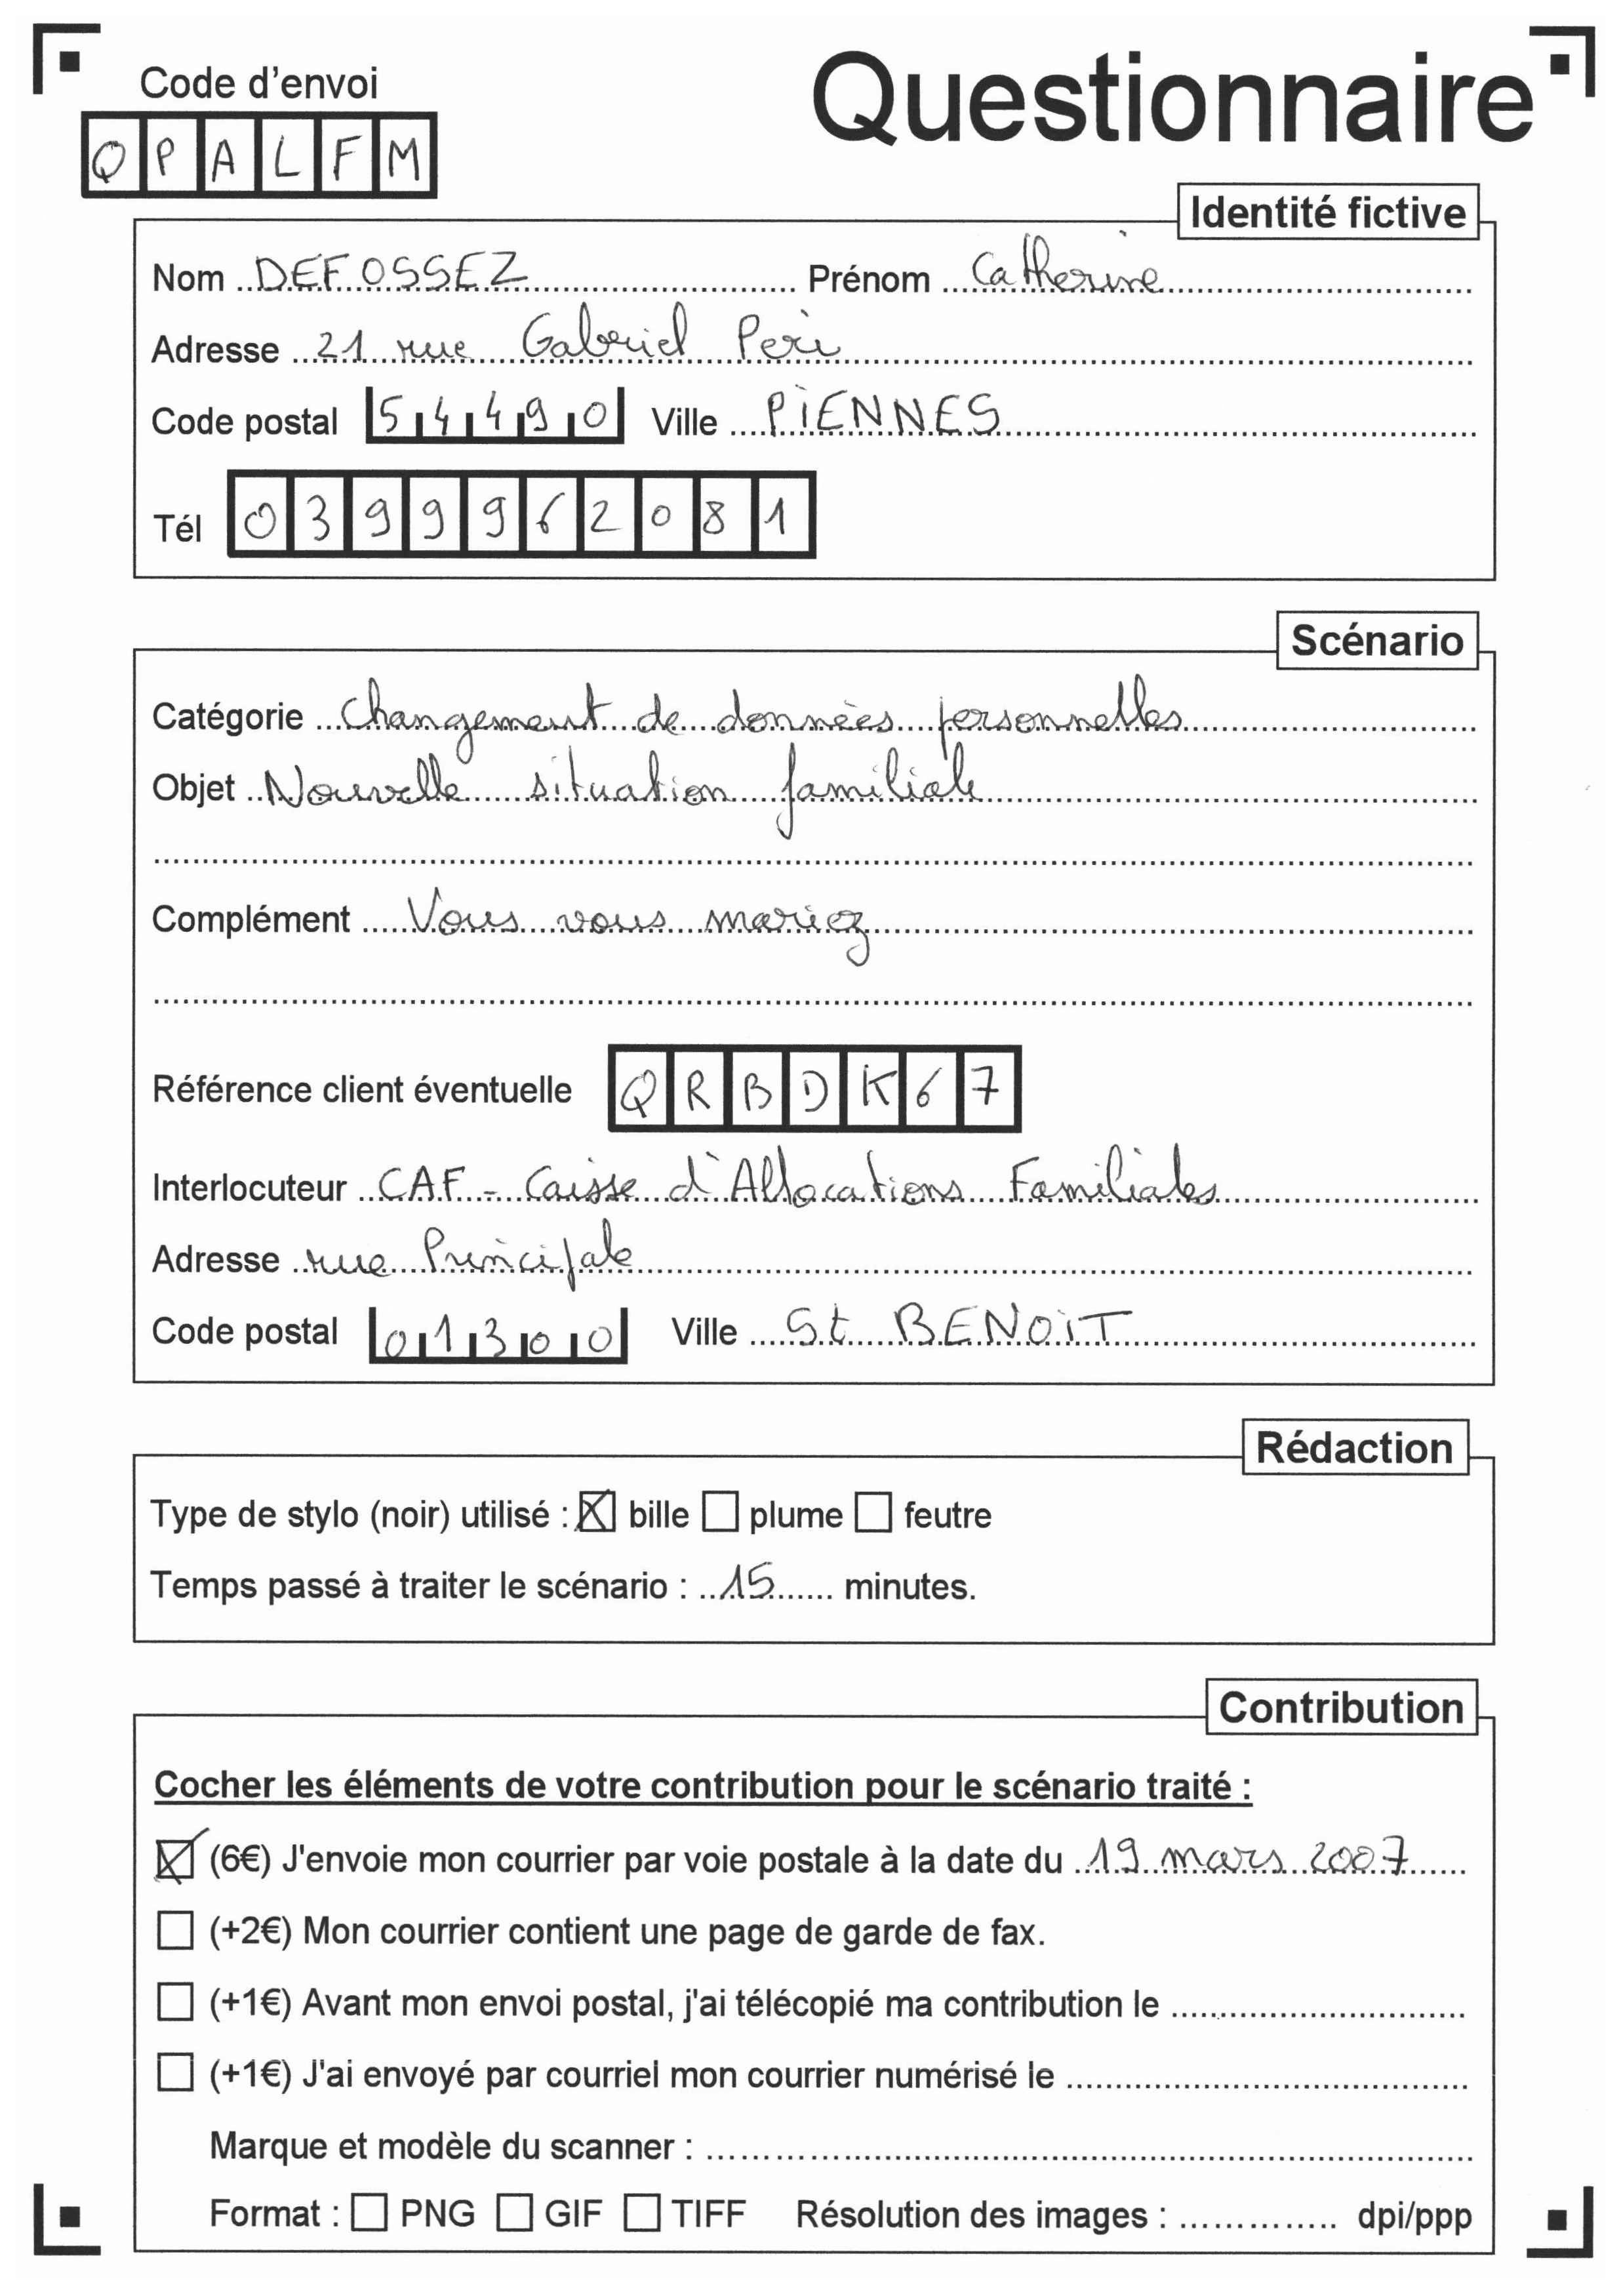 Code d'envoi
Questionnaire
QPALFM
Identité fictive
Nom DEFOSSEZ Prénom Catherine
Adresse 21 rue Gabriel Peri
Code postal 54490 Ville PIENNES
Tél 0399962081
Scénario
Catégorie Changement de données personnelles
Objet Nouvelle situation familiale
Complément Vous vous mariez
Référence client éventuelle QRBDK67
Interlocuteur CAF - Caisse d'Allocations Familiales
Adresse rue Principale
Code postal 01300 Ville St BENOIT
Rédaction
Type de stylo (noir) utilisé : bille plume feutre
Temps passé à traiter le scénario : 15 minutes.
Contribution
Cocher les éléments de votre contribution pour le scénario traité :
(6€) J'envoie mon courrier par voie postale à la date du 19 mars 2007
(+2€) Mon courrier contient une page de garde de fax.
(+1€) Avant mon envoi postal, j'ai télécopié ma contribution le
(+1€) J'ai envoyé par courriel mon courrier numérisé le
Marque et modèle du scanner :
Format : PNG GIF TIFF Résolution des images : dpi/ppp